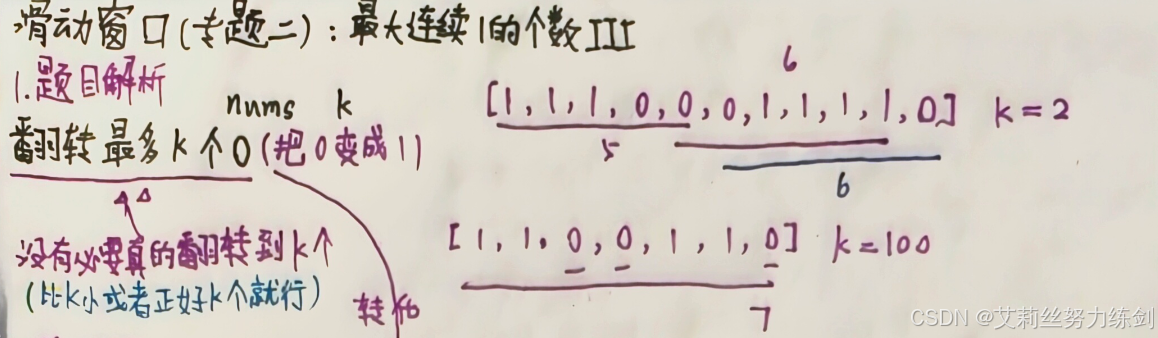 滑动窗口(专题二):最大连续1的个数III
1.题目解析
nums k
翻转最多k个0(把0变成1)
没有必要真的翻转到k个
(比k小或者正好k个就行)
转化
6
[1,1,1,0,0,0,1,1,1,1,0] k=2
5
6
[1,1,0,0,1,1,0] k=100
7
CSDN @艾莉丝努力练剑